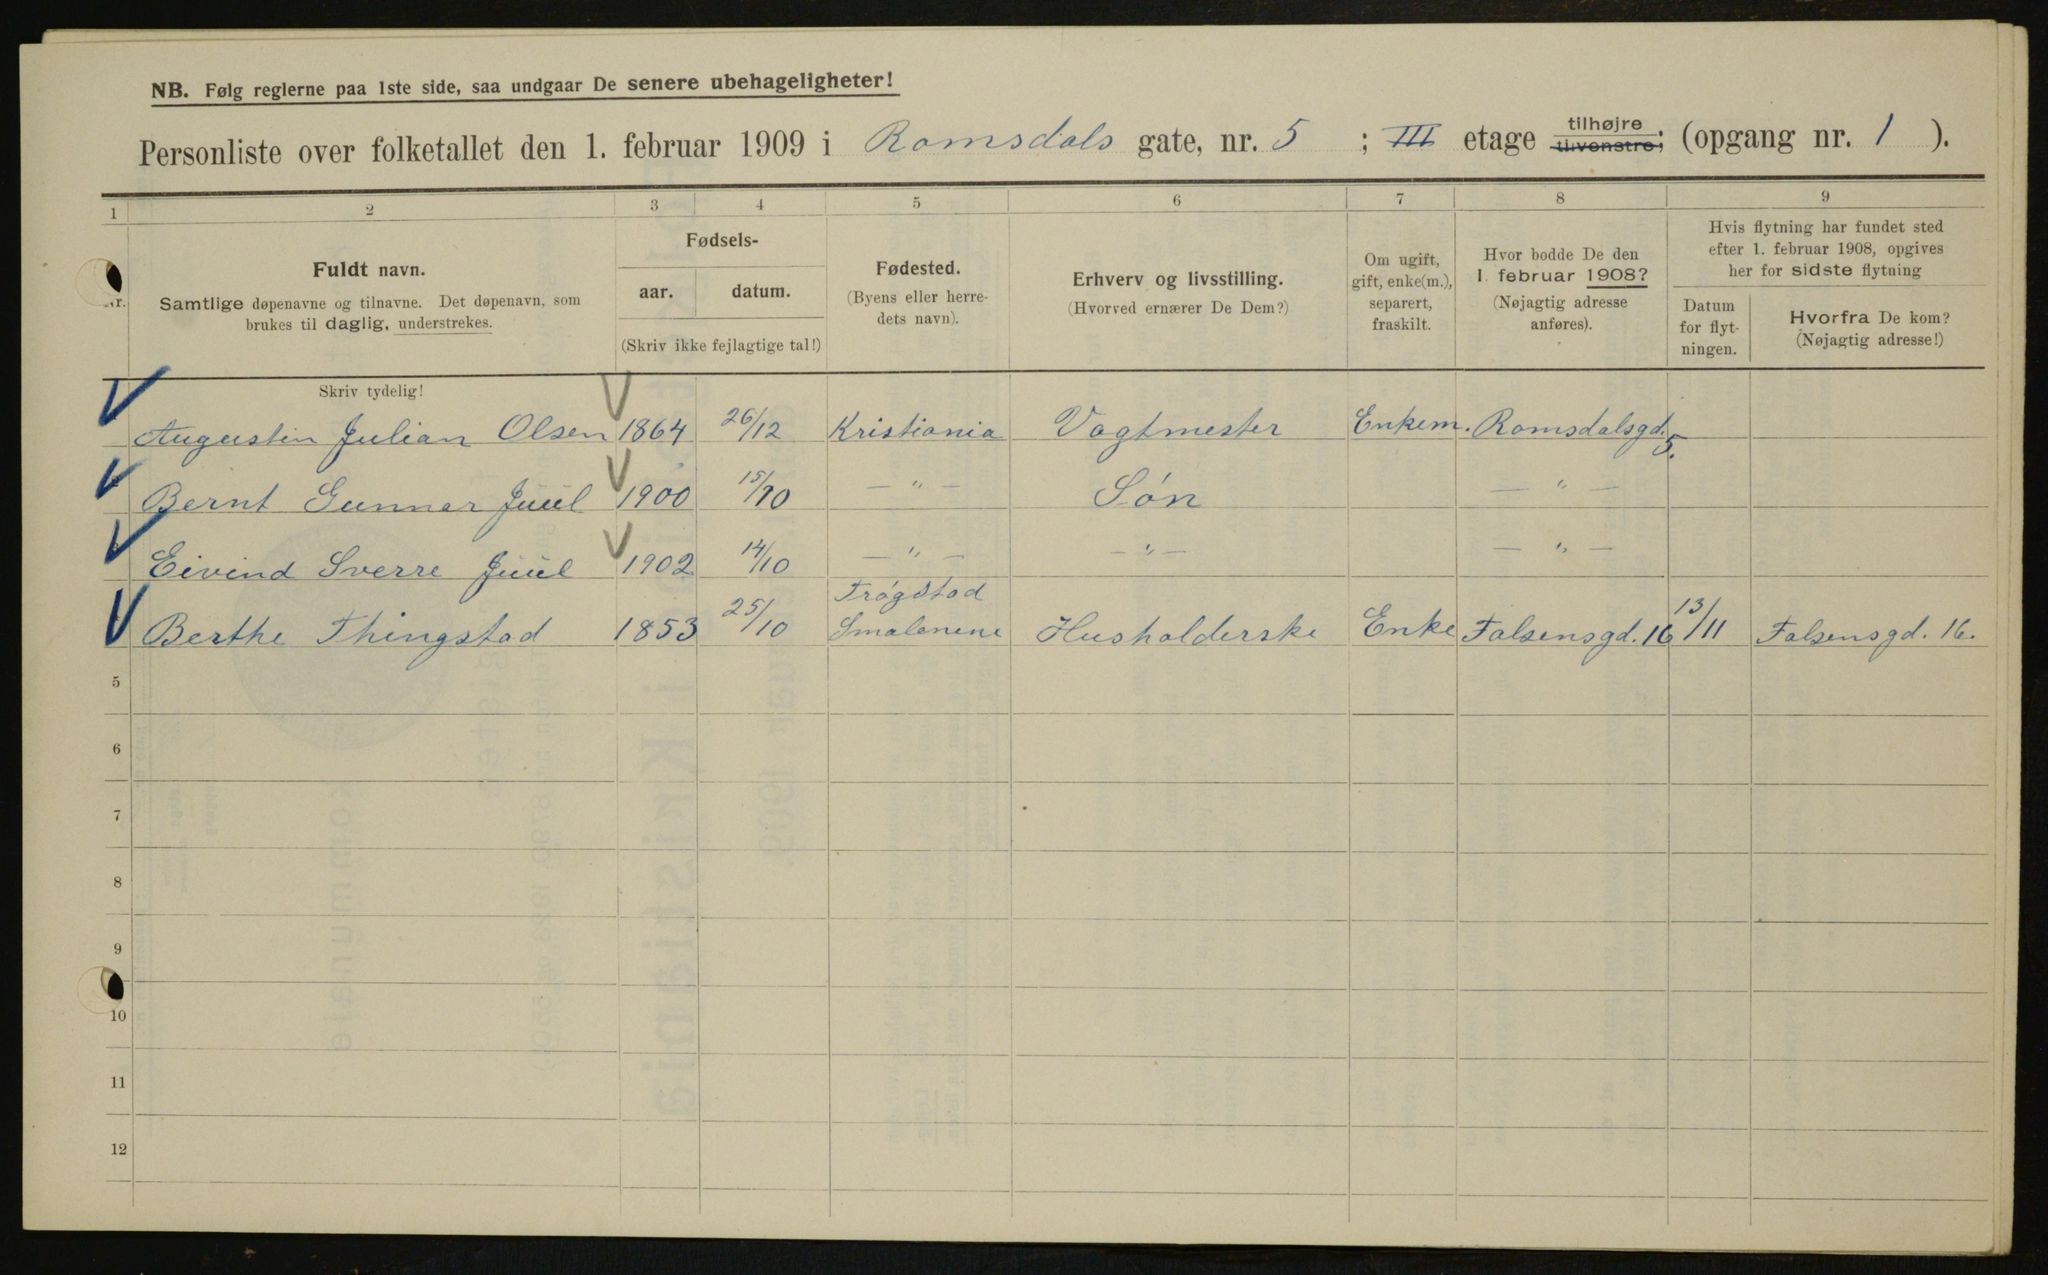 NB. Følg reglerne paa 1ste side, saa undgaar De senere ubehageligheter!
Personliste over folketallet den 1. februar 1909 i Romsdals gate, nr. 5 ; III etage tilhøjre tilvenstre; (opgang nr. 1 ).
1 2 3 4 5 6 7 8 9
Nr.
Fuldt navn.
Samtlige døpenavne og tilnavne. Det døpenavn, som
brukes til daglig, understrekes.
Fødsels-
aar. datum.
(Skriv ikke fejlagtige tal!)
Fødested.
(Byens eller herre-
dets navn).
Erhverv og livsstilling.
(Hvorved ernærer De Dem?)
Om ugift,
gift, enke(m.),
separert,
fraskilt.
Hvor bodde De den
1. februar 1908?
(Nøjagtig adresse
anføres).
Hvis flytning har fundet sted
efter 1. februar 1908, opgives
her for sidste flytning
Datum
for flyt-
ningen.
Hvorfra De kom?
(Nøjagtig adresse!)
Skriv tydelig!
Augustin Julian Olsen 1864 26/12 Kristiania Vagtmester Enkem. Romsdalsgd. 5.
Bernt Gunnar Juul 1900 15/10 — " — Søn — " —
Eivind Sverre Juul 1902 14/10 — " — — " — — " —
Berthe Thingstad 1853 25/10 Trøgstad Smalenene Husholderske Enke Falsensgd. 16 13/11 Falsensgd. 16.
5
6
7
8
9
10
11
12